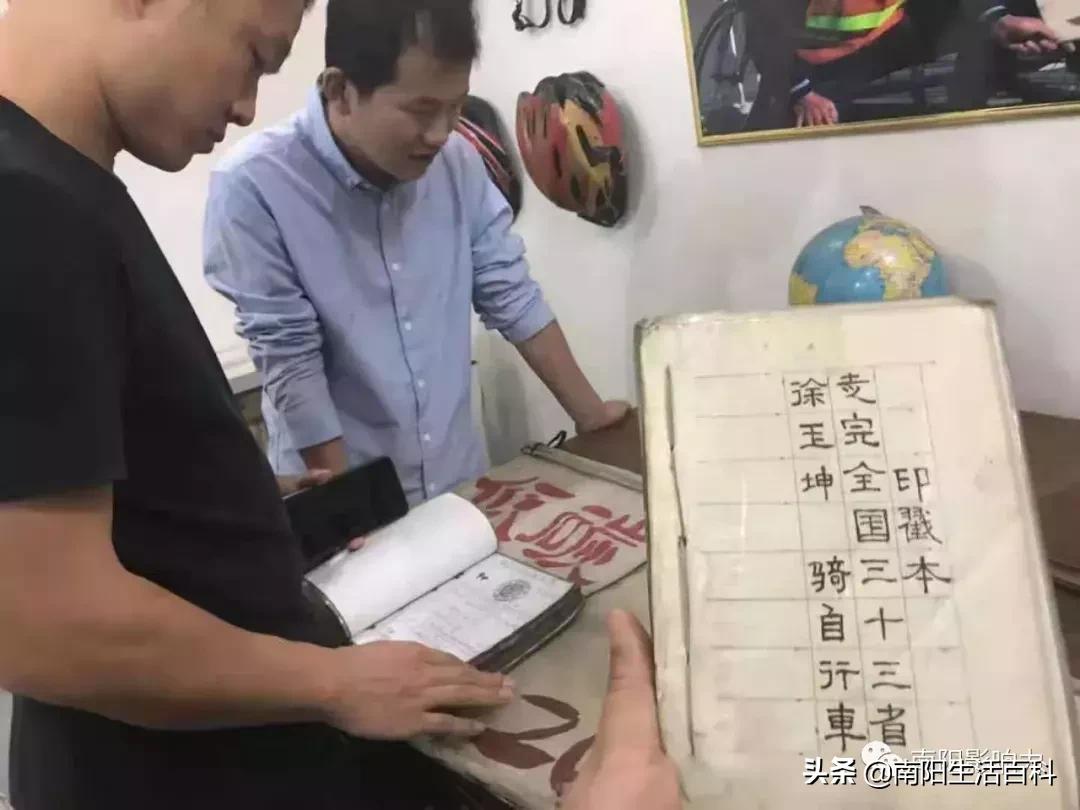 徐玉坤 骑自行車
走完全国三十三省
印戳本
低碳
南阳影响力
头条 @南阳生活百科